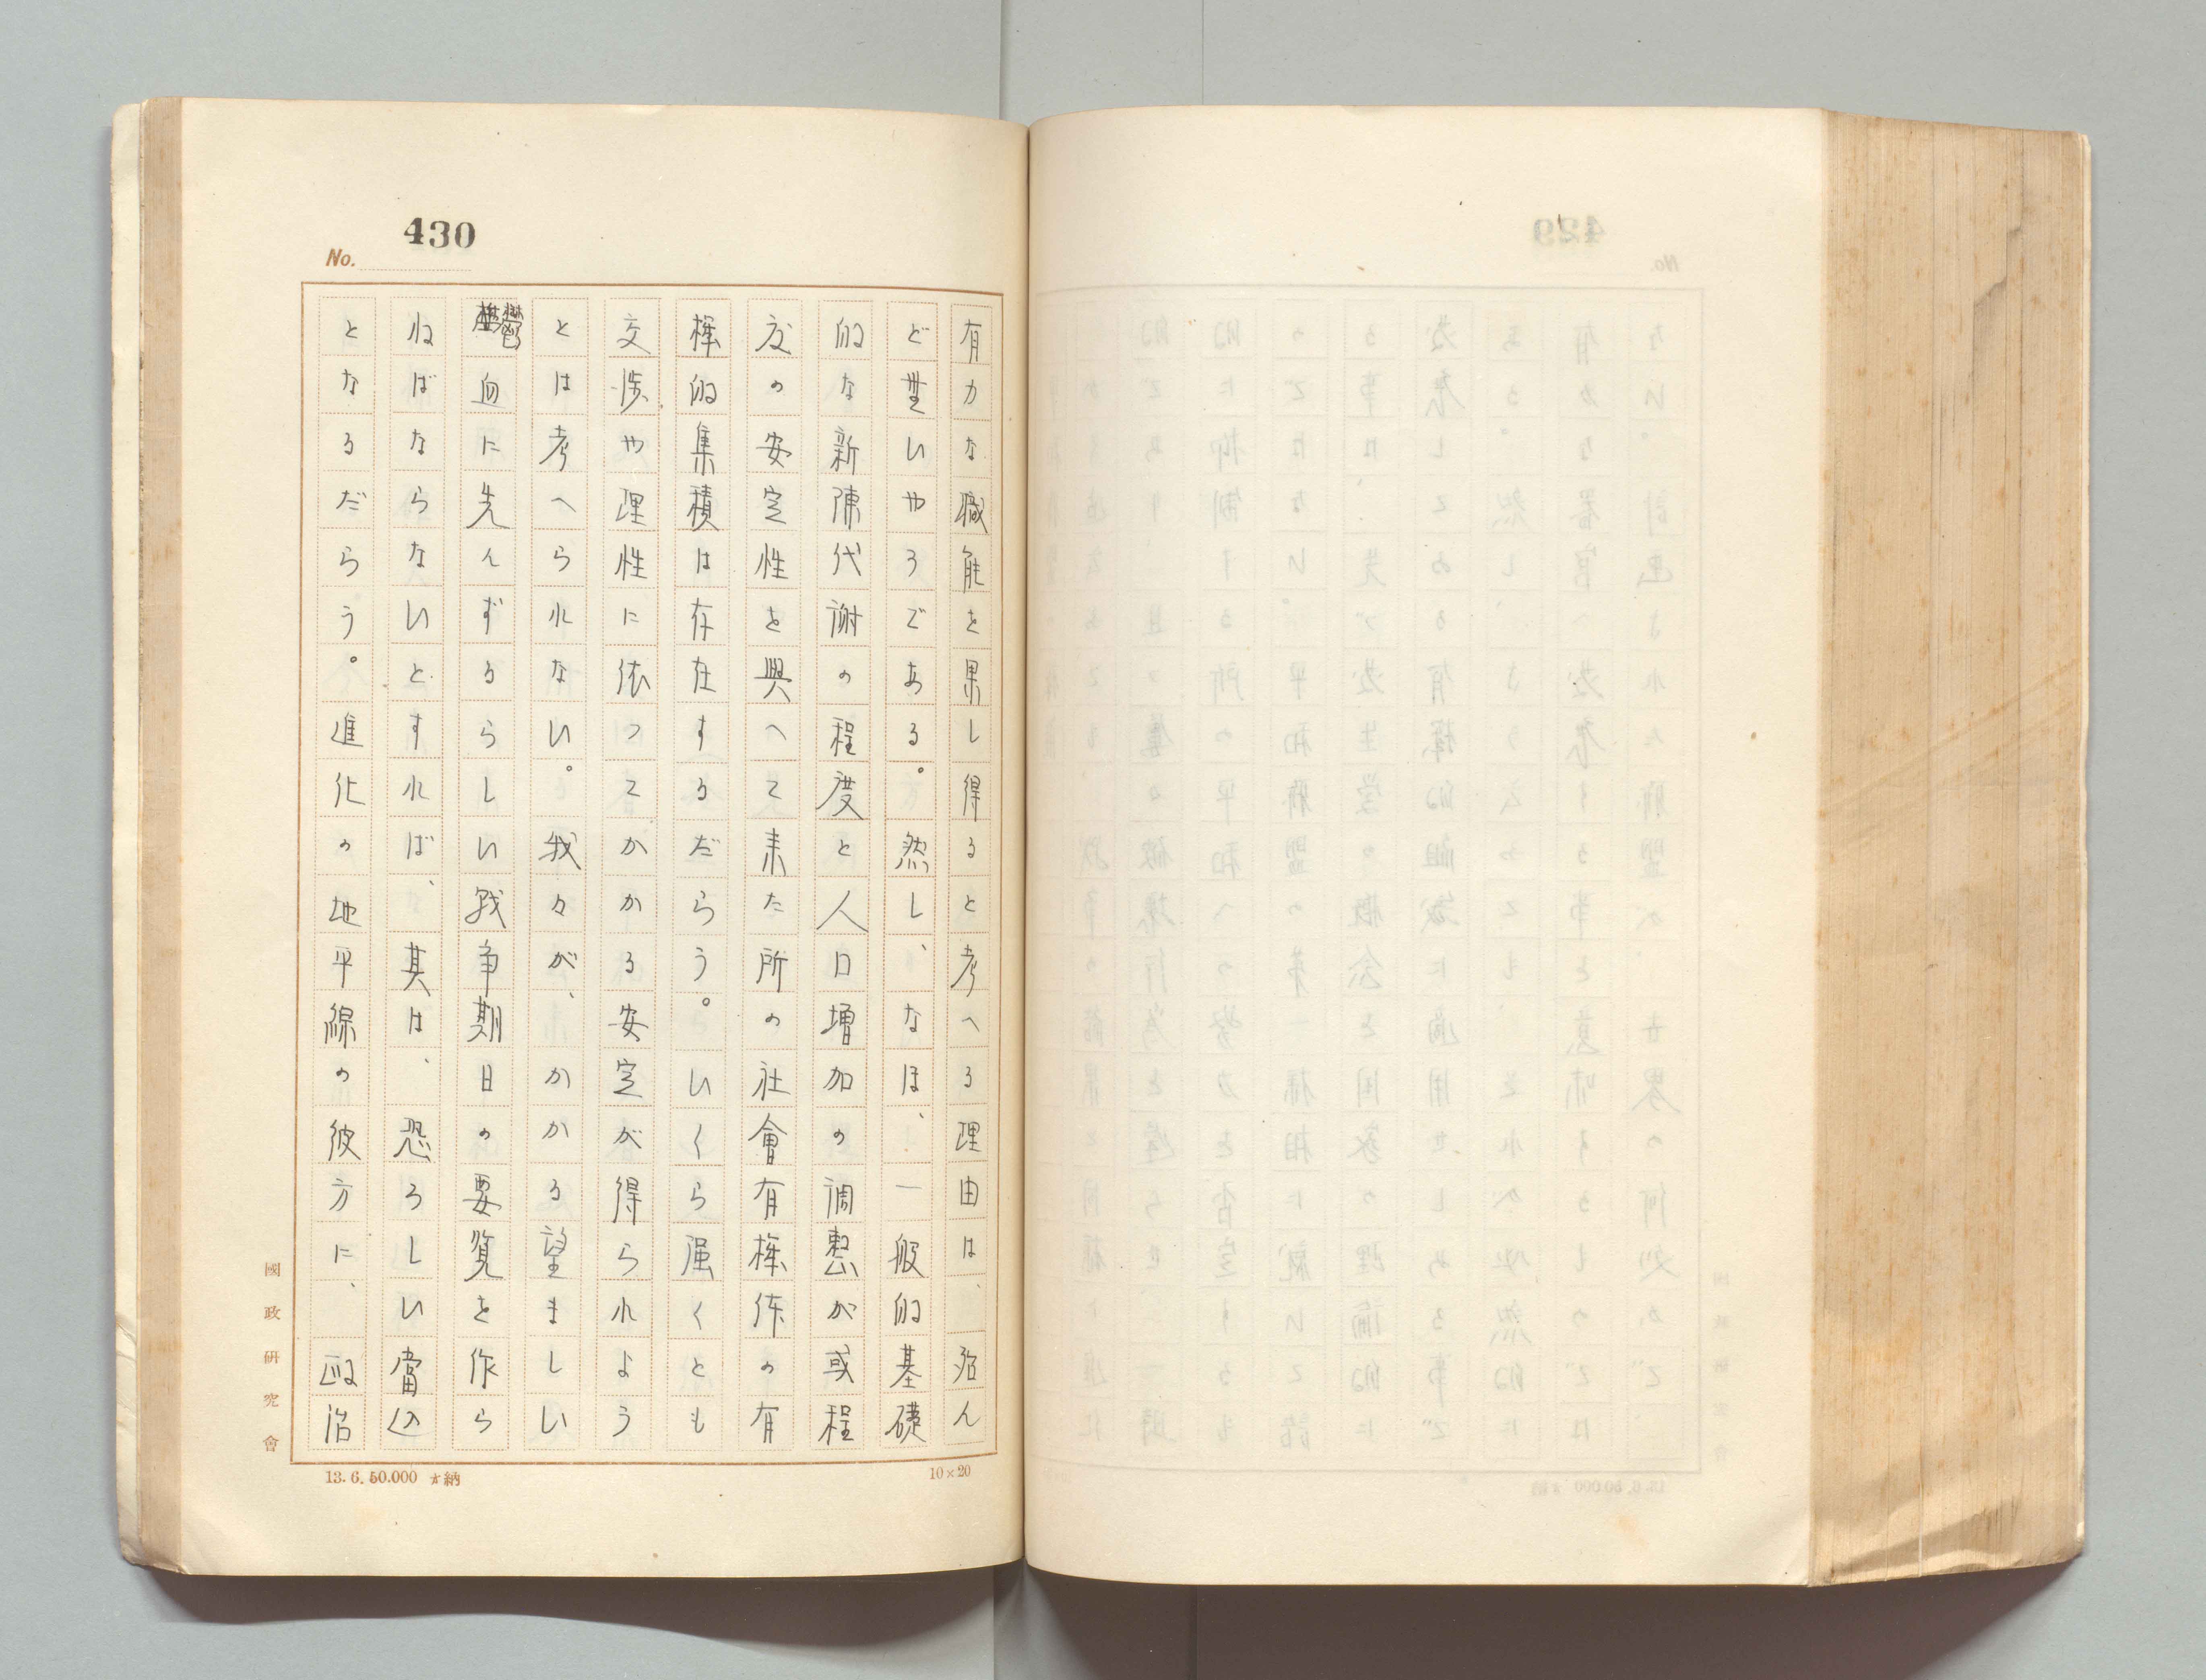 430
No.
有力な職能を果し得ると考へる理由は、殆ん
ど無いやうである。然し、なほ、一般的基礎
的な新陳代謝の程度と人口増加の調整が或程
度の安定性を與へて来た所の社會有機体の有
機的集積は存在するだらう。いくら强くとも
交渉や理性に依つてかかる安定が得られよう
とは考へられない。我々が、かかる望ましい
鬱血に先んずるらしい戦争期日の要覧を作ら
ねばならないとすれば、其は、恐ろしい當込
となるだらう。進化の地平線の彼方に、政治
國政研究會
13.6.50.000 納
10×20